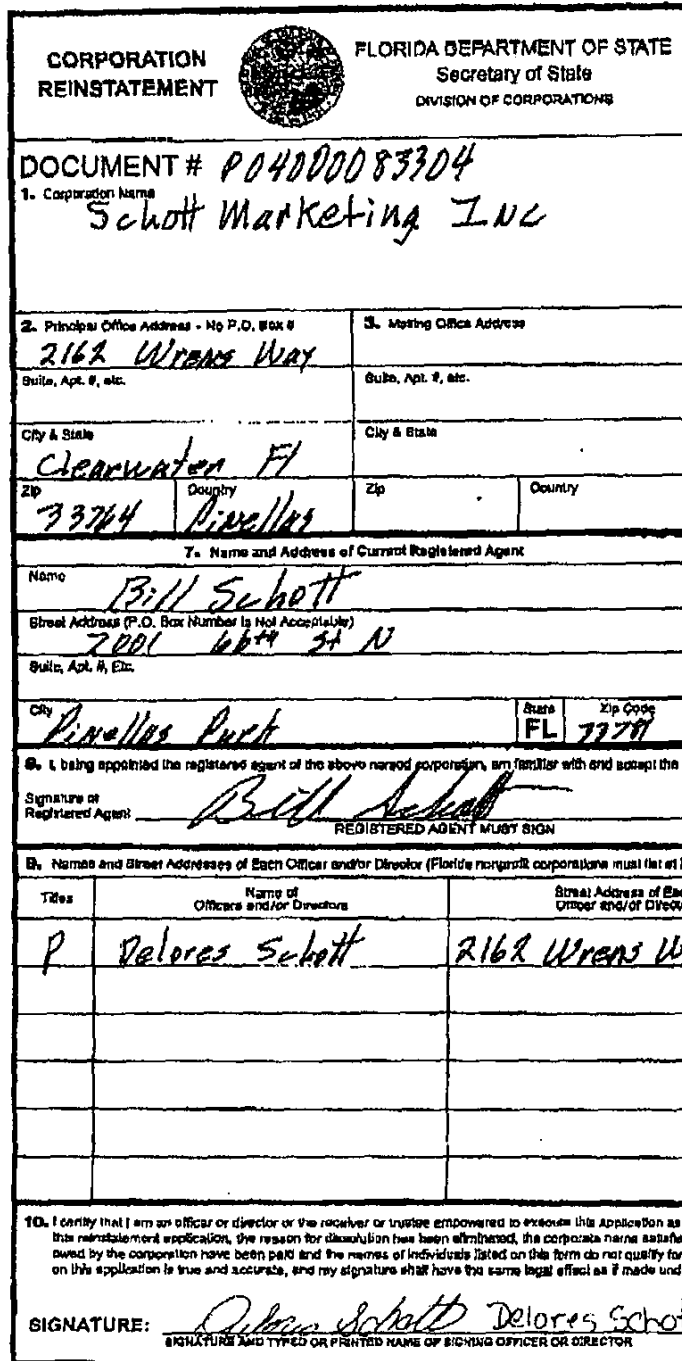 CORPORATION
REINSTATEMENT
FLORIDA DEPARTMENT OF STATE
Secretary of State
DIVISION OF CORPORATIONS
DOCUMENT # P04000083304
1. Corporation Name
Schott Marketing Inc
2. Principal Office Address - No P.O. Box #
3. Mailing Office Address
2162 Wrens Way
Suite, Apt. #, etc.
Suite, Apt. #, etc.
City & State
City & State
Clearwater Fl
Zip
Country
Zip
Country
33764 Pinellas
7. Name and Address of Current Registered Agent
Name
Bill Schott
Street Address (P.O. Box Number is Not Acceptable)
66th St N
Suite, Apt. #, Etc.
City
State
Zip Code
Pinellas Park
FL
8. I, being appointed the registered agent of the above named corporation, am familiar with and accept the
Signature of
Registered Agent
Bill Schott
REGISTERED AGENT MUST SIGN
9. Names and Street Addresses of Each Officer and/or Director (Florida nonprofit corporations must list at
Titles
Name of
Officers and/or Directors
Street Address of Eac
Officer and/or Directo
P Delores Schott 2162 Wrens W
10. I certify that I am an officer or director or the receiver or trustee empowered to execute this application as
this reinstatement application, the reason for dissolution has been eliminated, the corporate name satisfie
owed by the corporation have been paid and the names of individuals listed on this form do not qualify for
on this application is true and accurate, and my signature shall have the same legal effect as if made und
SIGNATURE: Delores Schott Delores Schot
SIGNATURE AND TYPED OR PRINTED NAME OF SIGNING OFFICER OR DIRECTOR